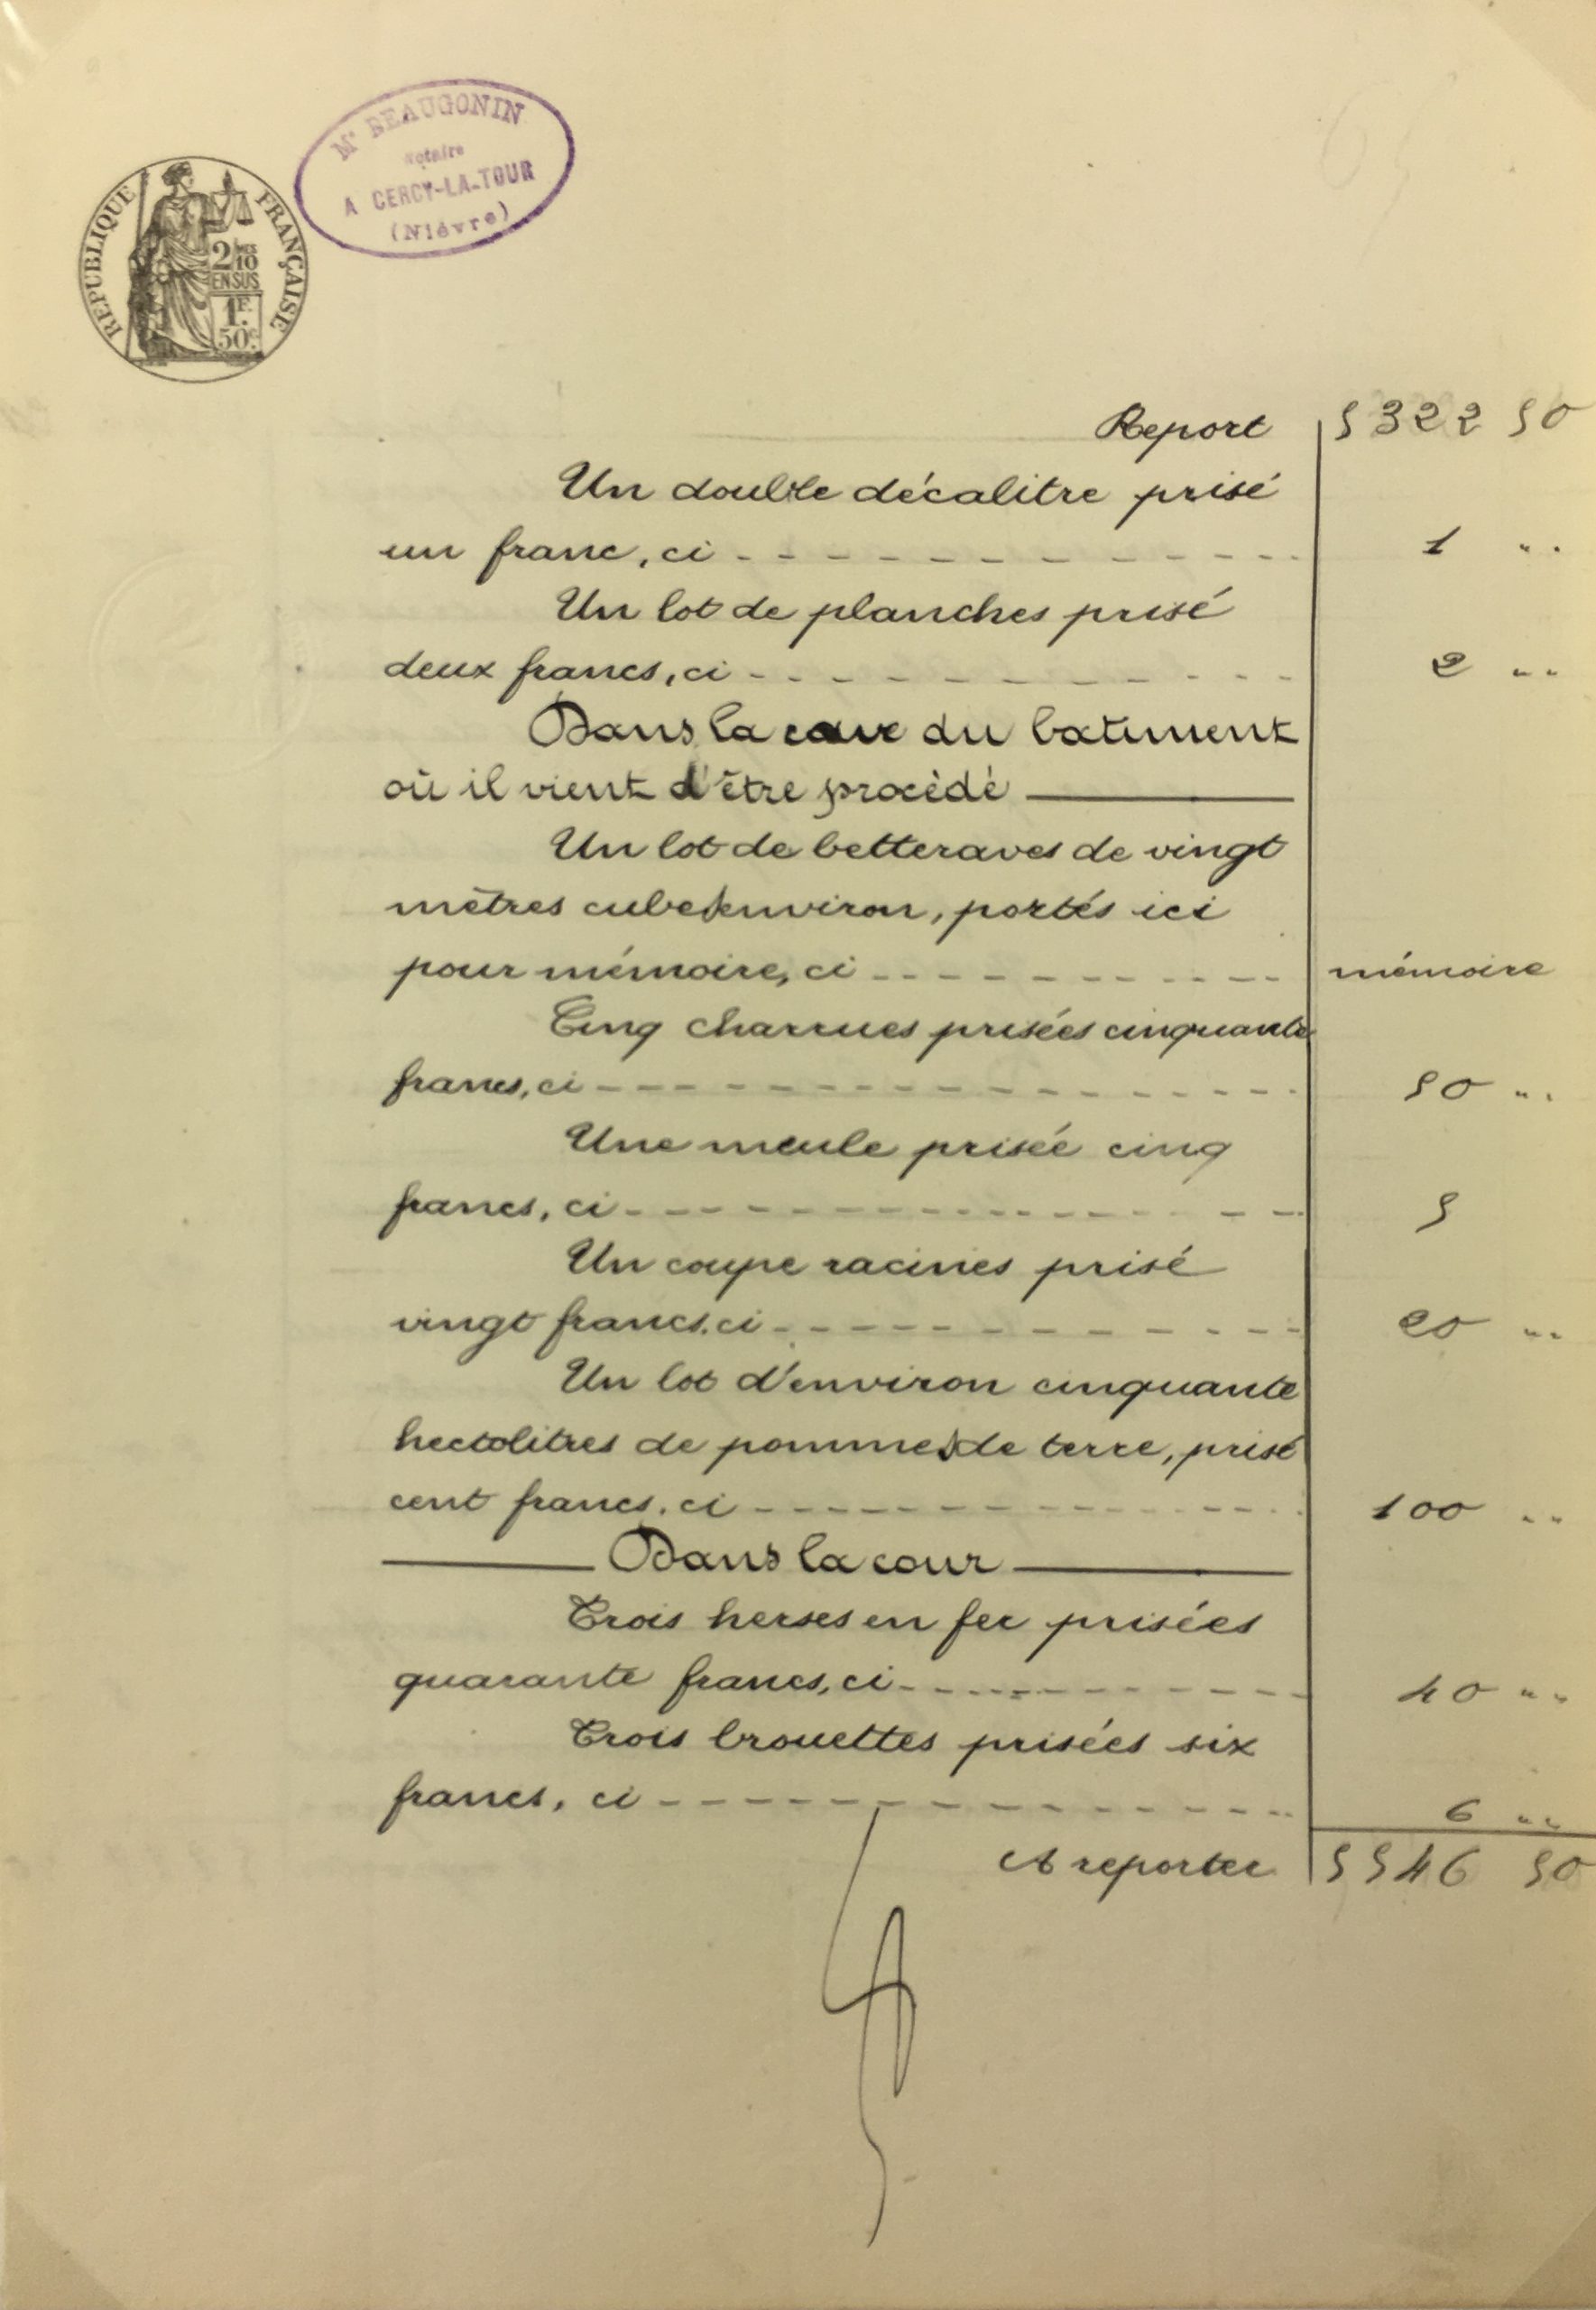 Mᵉ BEAUGONIN
Notaire
A CERCY-LA-TOUR
(Nièvre)
RÉPUBLIQUE FRANÇAISE
2/10 mes
EN SUS
1F.
50c.
Report 5322 50
Un double décalitre prisé
un franc, ci - - - - - - - - - - 1 "
Un lot de planches prisé
deux francs, ci - - - - - - - - - - 2 "
Dans la cave du batiment
où il vient d'être procèdé ———
Un lot de betteraves de vingt
mètres cubes environ, portés ici
pour mémoire, ci - - - - - - - - - mémoire
Cinq charrues prisées cinquante
francs, ci - - - - - - - - - - - - 50 "
Une meule prisée cinq
francs, ci - - - - - - - - - - - - 5
Un coupe racines prisé
vingt francs. ci - - - - - - - - - - 20 "
Un lot d'environ cinquante
hectolitres de pommes de terre, prisé
cent francs. ci - - - - - - - - - - 100 "
——— Dans la cour ———
Trois herses en fer prisées
quarante francs, ci - - - - - - - - - 40 "
Trois brouettes prisées six
francs, ci - - - - - - - - - - - 6 "
A reporter 5546 50